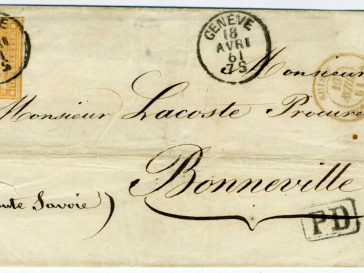 GENÈVE
18
AVRI
61
7S
Monsieur
Monsieur Lacoste Procure
Bonneville
aute Savoie)
P.D.